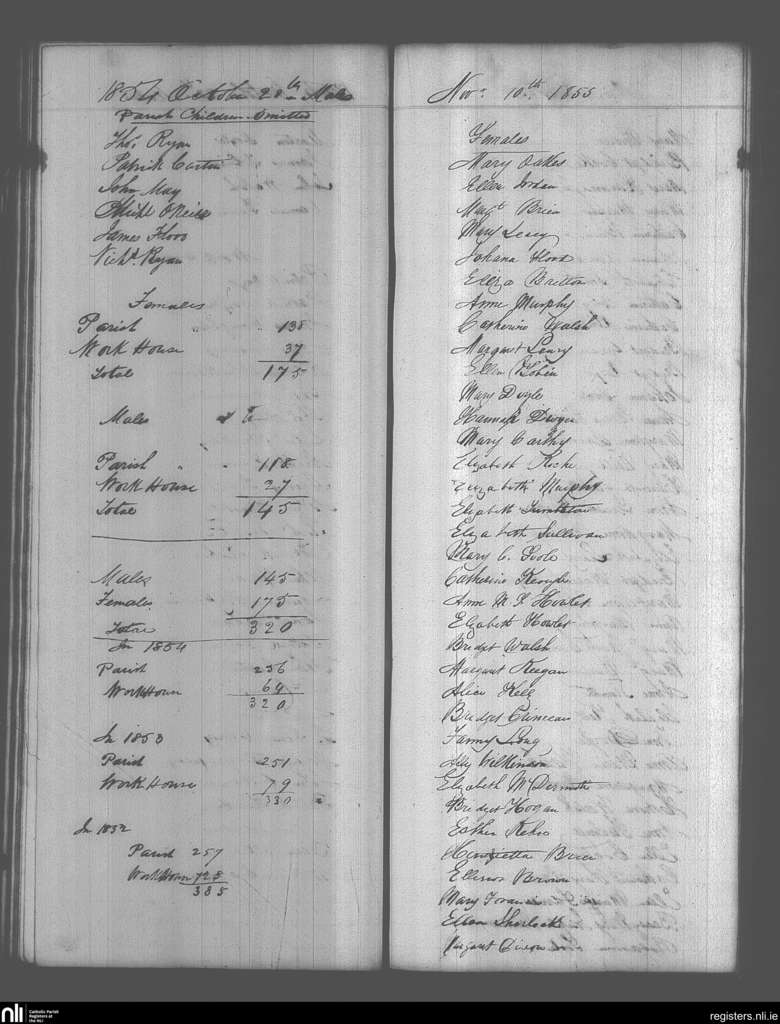 1854 October 20th Males
Parish Children Omitted
Thos. Ryan
Patrick
John May
Michl O'Neill
James Flood
Richd. Ryan
Females
Parish " .. 138
Work House 37
Total 175
Males
Parish " . 118
Work House 27
Total 145
Males 145
Females 175
Total 320
In 1854
Parish 256
WorkHouse 64
320
In 1853
Parish 251
Work House 79
330
In 1852
Parish 257
WorkHouse 128
385
Novr. 10th 1855
Females
Mary Oakes
Ellen Jordan
Margt Brien
Mary Leary
Johana Flood
Eliza Britton
Anne Murphy
Catherine Walsh
Margaret Leary
Ellen Tobin
Mary Doyle
Hannah Dwyer
Mary Carthy
Elizabeth Roche
Elizabeth Murphy
Elizabeth
Elizabeth Sullivan
Mary C. Poole
Catherine Keough
Anne M. J. Howlet
Elizabeth Howlet
Bridget Walsh
Margaret Keegan
Alice
Bridget
Fanny Long
Wilkinson
Elizabeth McDermott
Bridget Hogan
Esther Kehoe
Henrietta Brien
Ellenor
Mary
Ellen Sherlock
Margaret Dixon
nli
Catholic Parish
Registers at
the NLI
registers.nli.ie